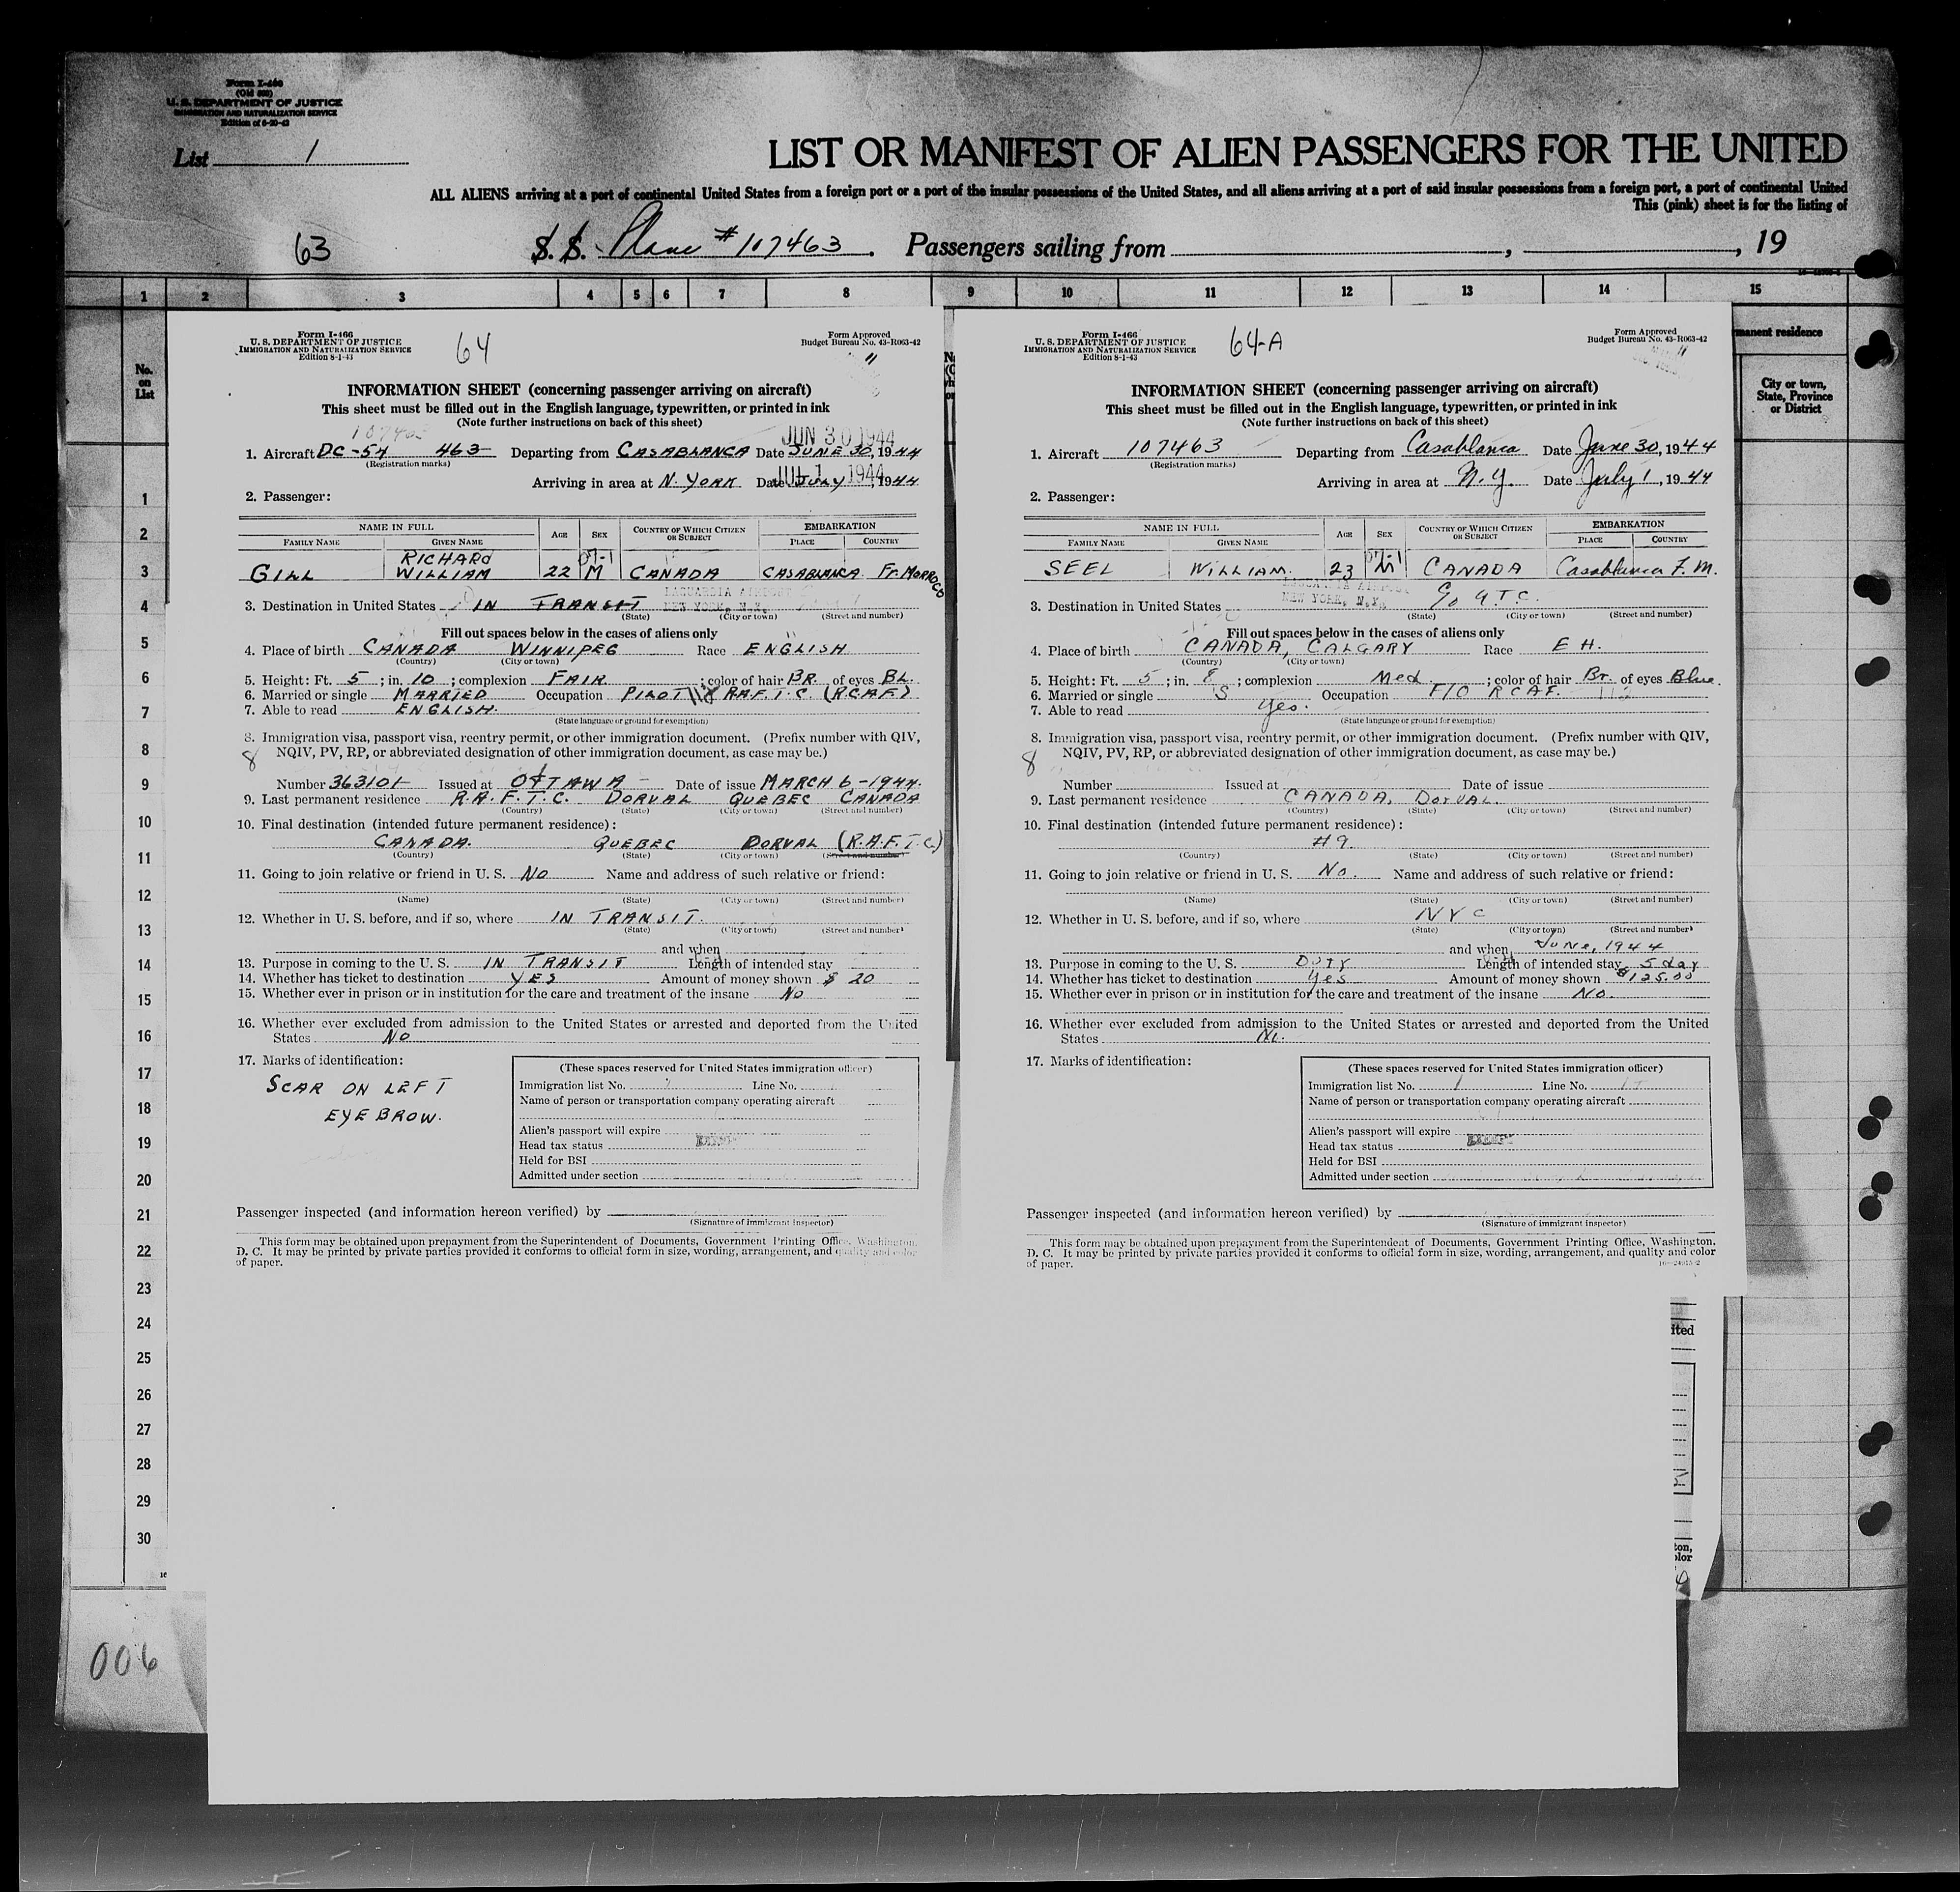 Form I-460
(Old 500)
U. S. DEPARTMENT OF JUSTICE
IMMIGRATION AND NATURALIZATION SERVICE
Edition of 6-20-43
List 1
LIST OR MANIFEST OF ALIEN PASSENGERS FOR THE UNITED
ALL ALIENS arriving at a port of continental United States from a foreign port or a port of the insular possessions of the United States, and all aliens arriving at a port of said insular possessions from a foreign port, a port of continental United
This (pink) sheet is for the listing of
63 S. S. Plane # 107463. Passengers sailing from , , 19
1 2 3 4 5 6 7 8 9 10 11 12 13 14 15
No. on List
manent residence
City or town, State, Province or District
Form I-466
U. S. DEPARTMENT OF JUSTICE
IMMIGRATION AND NATURALIZATION SERVICE
Edition 8-1-43
64
Form Approved
Budget Bureau No. 43-R063-42
INFORMATION SHEET (concerning passenger arriving on aircraft)
This sheet must be filled out in the English language, typewritten, or printed in ink
(Note further instructions on back of this sheet)
JUN 30 1944
1. Aircraft DC-54 463 Departing from CASABLANCA Date JUNE 30, 1944
(Registration marks)
JUL 1 1944
Arriving in area at N. YORK Date JULY , 1944
2. Passenger:
NAME IN FULL AGE SEX COUNTRY OF WHICH CITIZEN OR SUBJECT EMBARKATION
FAMILY NAME GIVEN NAME PLACE COUNTRY
GILL RICHARD WILLIAM 22 M CANADA CASABLANCA Fr. MOROCCO
LAGUARDIA AIRPORT
NEW YORK, N.Y.
3. Destination in United States IN TRANSIT
(State) (City or town) (Street and number)
Fill out spaces below in the cases of aliens only
4. Place of birth CANADA WINNIPEG Race ENGLISH
(Country) (City or town)
5. Height: Ft. 5 ; in. 10 ; complexion FAIR ; color of hair BR. of eyes BL.
6. Married or single MARRIED Occupation PILOT R.A.F.T.C. (R.C.A.F.)
7. Able to read ENGLISH.
(State language or ground for exemption)
8. Immigration visa, passport visa, reentry permit, or other immigration document. (Prefix number with QIV,
NQIV, PV, RP, or abbreviated designation of other immigration document, as case may be.)
8
Number 363101 Issued at OTTAWA Date of issue MARCH 6-1944.
9. Last permanent residence R.A.F.T.C. DORVAL QUEBEC CANADA
(Country) (State) (City or town) (Street and number)
10. Final destination (intended future permanent residence):
CANADA. QUEBEC DORVAL (R.A.F.T.C.)
(Country) (State) (City or town) (Street and number)
11. Going to join relative or friend in U. S. NO Name and address of such relative or friend:
(Name) (State) (City or town) (Street and number)
12. Whether in U. S. before, and if so, where IN TRANSIT.
(State) (City or town) (Street and number)
and when
13. Purpose in coming to the U. S. IN TRANSIT Length of intended stay
14. Whether has ticket to destination YES Amount of money shown $ 20
15. Whether ever in prison or in institution for the care and treatment of the insane NO
16. Whether ever excluded from admission to the United States or arrested and deported from the United
States NO
17. Marks of identification:
SCAR ON LEFT
EYEBROW.
(These spaces reserved for United States immigration officer)
Immigration list No. Line No.
Name of person or transportation company operating aircraft
Alien's passport will expire
Head tax status EXEMPT
Held for BSI
Admitted under section
Passenger inspected (and information hereon verified) by
(Signature of immigrant inspector)
This form may be obtained upon prepayment from the Superintendent of Documents, Government Printing Office, Washington,
D. C. It may be printed by private parties provided it conforms to official form in size, wording, arrangement, and quality and color
of paper.
Form I-466
U. S. DEPARTMENT OF JUSTICE
IMMIGRATION AND NATURALIZATION SERVICE
Edition 8-1-43
64-A
Form Approved
Budget Bureau No. 43-R063-42
INFORMATION SHEET (concerning passenger arriving on aircraft)
This sheet must be filled out in the English language, typewritten, or printed in ink
(Note further instructions on back of this sheet)
1. Aircraft 107463 Departing from Casablanca Date June 30, 1944
(Registration marks)
Arriving in area at N.Y. Date July 1, 1944
2. Passenger:
NAME IN FULL AGE SEX COUNTRY OF WHICH CITIZEN OR SUBJECT EMBARKATION
FAMILY NAME GIVEN NAME PLACE COUNTRY
SEEL WILLIAM. 23 M CANADA Casablanca F. M.
LAGUARDIA AIRPORT
NEW YORK, N.Y.
3. Destination in United States c/o A.T.C.
(State) (City or town) (Street and number)
Fill out spaces below in the cases of aliens only
4. Place of birth CANADA, CALGARY Race E H.
(Country) (City or town)
5. Height: Ft. 5 ; in. 8 ; complexion Med ; color of hair Br. of eyes Blue.
6. Married or single S Occupation F/O RCAF.
7. Able to read yes.
(State language or ground for exemption)
8. Immigration visa, passport visa, reentry permit, or other immigration document. (Prefix number with QIV,
NQIV, PV, RP, or abbreviated designation of other immigration document, as case may be.)
8
Number Issued at Date of issue
9. Last permanent residence CANADA, Dorval.
(Country) (State) (City or town) (Street and number)
10. Final destination (intended future permanent residence):
#9.
(Country) (State) (City or town) (Street and number)
11. Going to join relative or friend in U. S. No. Name and address of such relative or friend:
(Name) (State) (City or town) (Street and number)
12. Whether in U. S. before, and if so, where NYC
(State) (City or town) (Street and number)
and when June, 1944
13. Purpose in coming to the U. S. DUTY Length of intended stay 5 day
14. Whether has ticket to destination Yes Amount of money shown $125.00
15. Whether ever in prison or in institution for the care and treatment of the insane No.
16. Whether ever excluded from admission to the United States or arrested and deported from the United
States No.
17. Marks of identification:
(These spaces reserved for United States immigration officer)
Immigration list No. 1 Line No.
Name of person or transportation company operating aircraft
Alien's passport will expire
Head tax status EXEMPT
Held for BSI
Admitted under section
Passenger inspected (and information hereon verified) by
(Signature of immigrant inspector)
This form may be obtained upon prepayment from the Superintendent of Documents, Government Printing Office, Washington,
D. C. It may be printed by private parties provided it conforms to official form in size, wording, arrangement, and quality and color
of paper.
16—24915-2
1
2
3
4
5
6
7
8
9
10
11
12
13
14
15
16
17
18
19
20
21
22
23
24
25
26
27
28
29
30
ited
ton,
olor
006